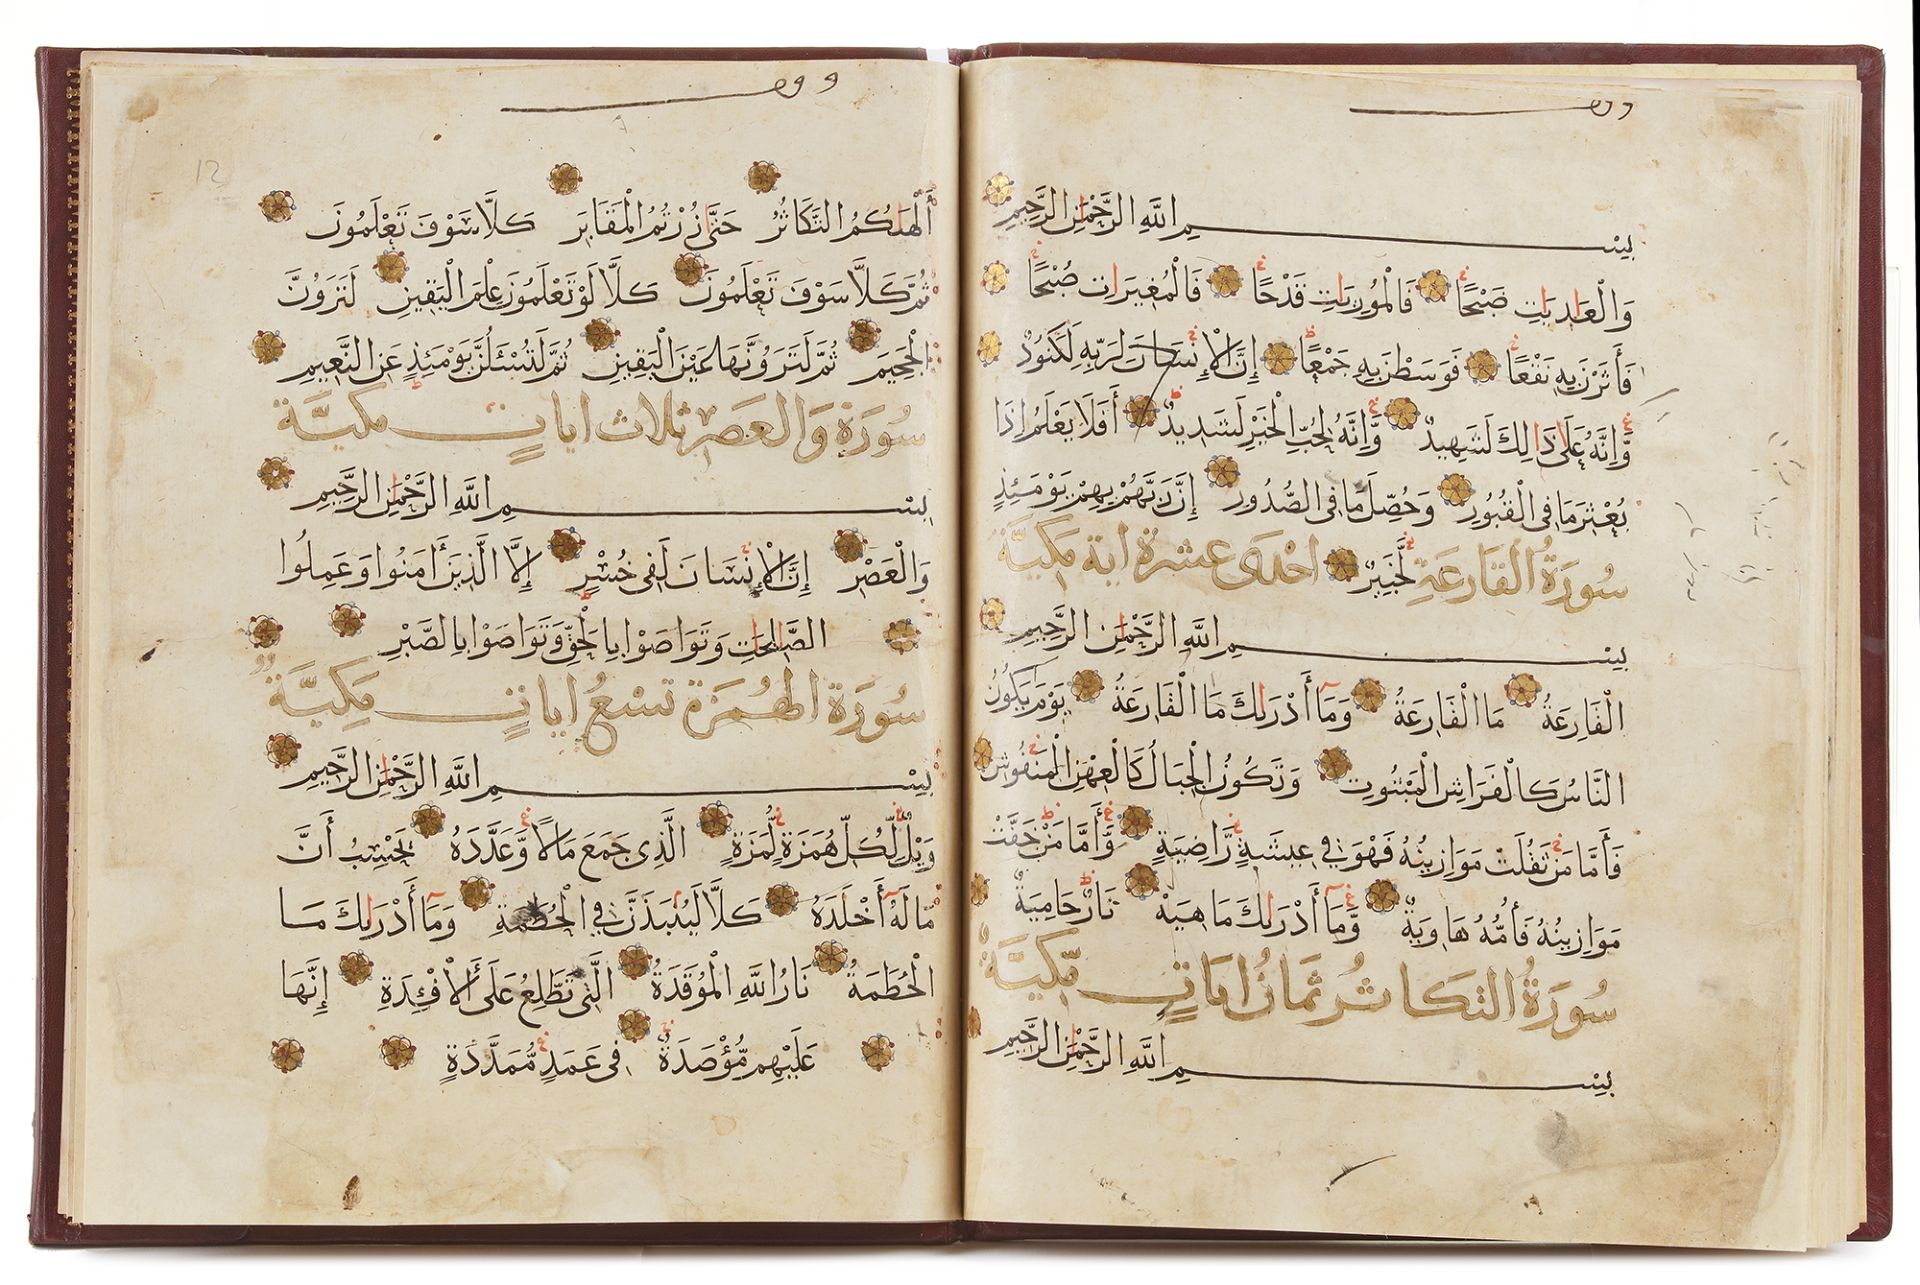 وقف
بِسْمِ اللَّهِ الرَّحْمٰنِ الرَّحِيمِ
وَالْعَادِيَاتِ ضَبْحًا فَالْمُورِيَاتِ قَدْحًا فَالْمُغِيرَاتِ صُبْحًا
فَأَثَرْنَ بِهِ نَقْعًا فَوَسَطْنَ بِهِ جَمْعًا إِنَّ الْإِنْسَانَ لَرَبِّهِ لَكَنُودٌ
وَإِنَّهُ عَلَى ذَالِكَ لَشَهِيدٌ وَإِنَّهُ لِحُبِّ الْخَيْرِ لَشَدِيدٌ أَفَلَا يَعْلَمُ إِذَا
بُعْثِرَ مَا فِي الْقُبُورِ وَحُصِّلَ مَا فِي الصُّدُورِ إِنَّ رَبَّهُمْ بِهِمْ يَوْمَئِذٍ
لَّخَبِيرٌ سُورَةُ الْقَارِعَةِ احْدَى عَشَرَة اية مَكِيَّة
بِسْمِ اللَّهِ الرَّحْمٰنِ الرَّحِيمِ
الْقَارِعَةُ مَا الْقَارِعَةُ وَمَا أَدْرَاكَ مَا الْقَارِعَةُ يَوْمَ يَكُونُ
النَّاسُ كَالْفَرَاشِ الْمَبْثُوثِ وَتَكُونُ الْجِبَالُ كَالْعِهْنِ الْمَنْفُوشِ
فَأَمَّا مَنْ ثَقُلَتْ مَوَازِينُهُ فَهُوَ فِي عِيشَةٍ رَّاضِيَةٍ وَأَمَّا مَنْ خَفَّتْ
مَوَازِينُهُ فَأُمُّهُ هَاوِيَةٌ وَمَا أَدْرَاكَ مَا هِيَهْ نَارٌ حَامِيَةٌ
سُورَةُ التَّكَاثُرِ ثَمَانُ ايَاتٍ مَكِّيَّة
بِسْمِ اللَّهِ الرَّحْمٰنِ الرَّحِيمِ
وقف
12
أَلْهَاكُمُ التَّكَاثُرُ حَتَّى زُرْتُمُ الْمَقَابِرَ كَلَّا سَوْفَ تَعْلَمُونَ
ثُمَّ كَلَّا سَوْفَ تَعْلَمُونَ كَلَّا لَوْ تَعْلَمُونَ عِلْمَ الْيَقِينِ لَتَرَوُنَّ
الْجَحِيمَ ثُمَّ لَتَرَوُنَّهَا عَيْنَ الْيَقِينِ ثُمَّ لَتُسْئَلُنَّ يَوْمَئِذٍ عَنِ النَّعِيمِ
سُورَة وَالْعَصْرِ ثلاث ايات مَكِيَّة
بِسْمِ اللَّهِ الرَّحْمٰنِ الرَّحِيمِ
وَالْعَصْرِ إِنَّ الْإِنْسَانَ لَفِي خُسْرٍ إِلَّا الَّذِينَ أَمَنُوا وَعَمِلُوا
الصَّالِحَاتِ وَتَوَاصَوْا بِالْحَقِّ وَتَوَاصَوْا بِالصَّبْرِ
سُورَة الهُمَزَة تسْعُ ايَاتٍ مَكِيَّة
بِسْمِ اللَّهِ الرَّحْمٰنِ الرَّحِيمِ
وَيْلٌ لِّكُلِّ هُمَزَةٍ لُّمَزَةٍ الَّذِي جَمَعَ مَالًا وَعَدَّدَهُ يَحْسِبُ أَنَّ
مَالَهُ أَخْلَدَهُ كَلَّا لَيُنْبَذَنَّ فِي الْحُطَمَةِ وَمَا أَدْرَاكَ مَا
الْحُطَمَةُ نَارُ اللَّهِ الْمُوقَدَةُ الَّتِي تَطَّلِعُ عَلَى الْأَفْئِدَةِ إِنَّهَا
عَلَيْهِم مُّؤْصَدَةٌ فِي عَمَدٍ مُّمَدَّدَةٍ